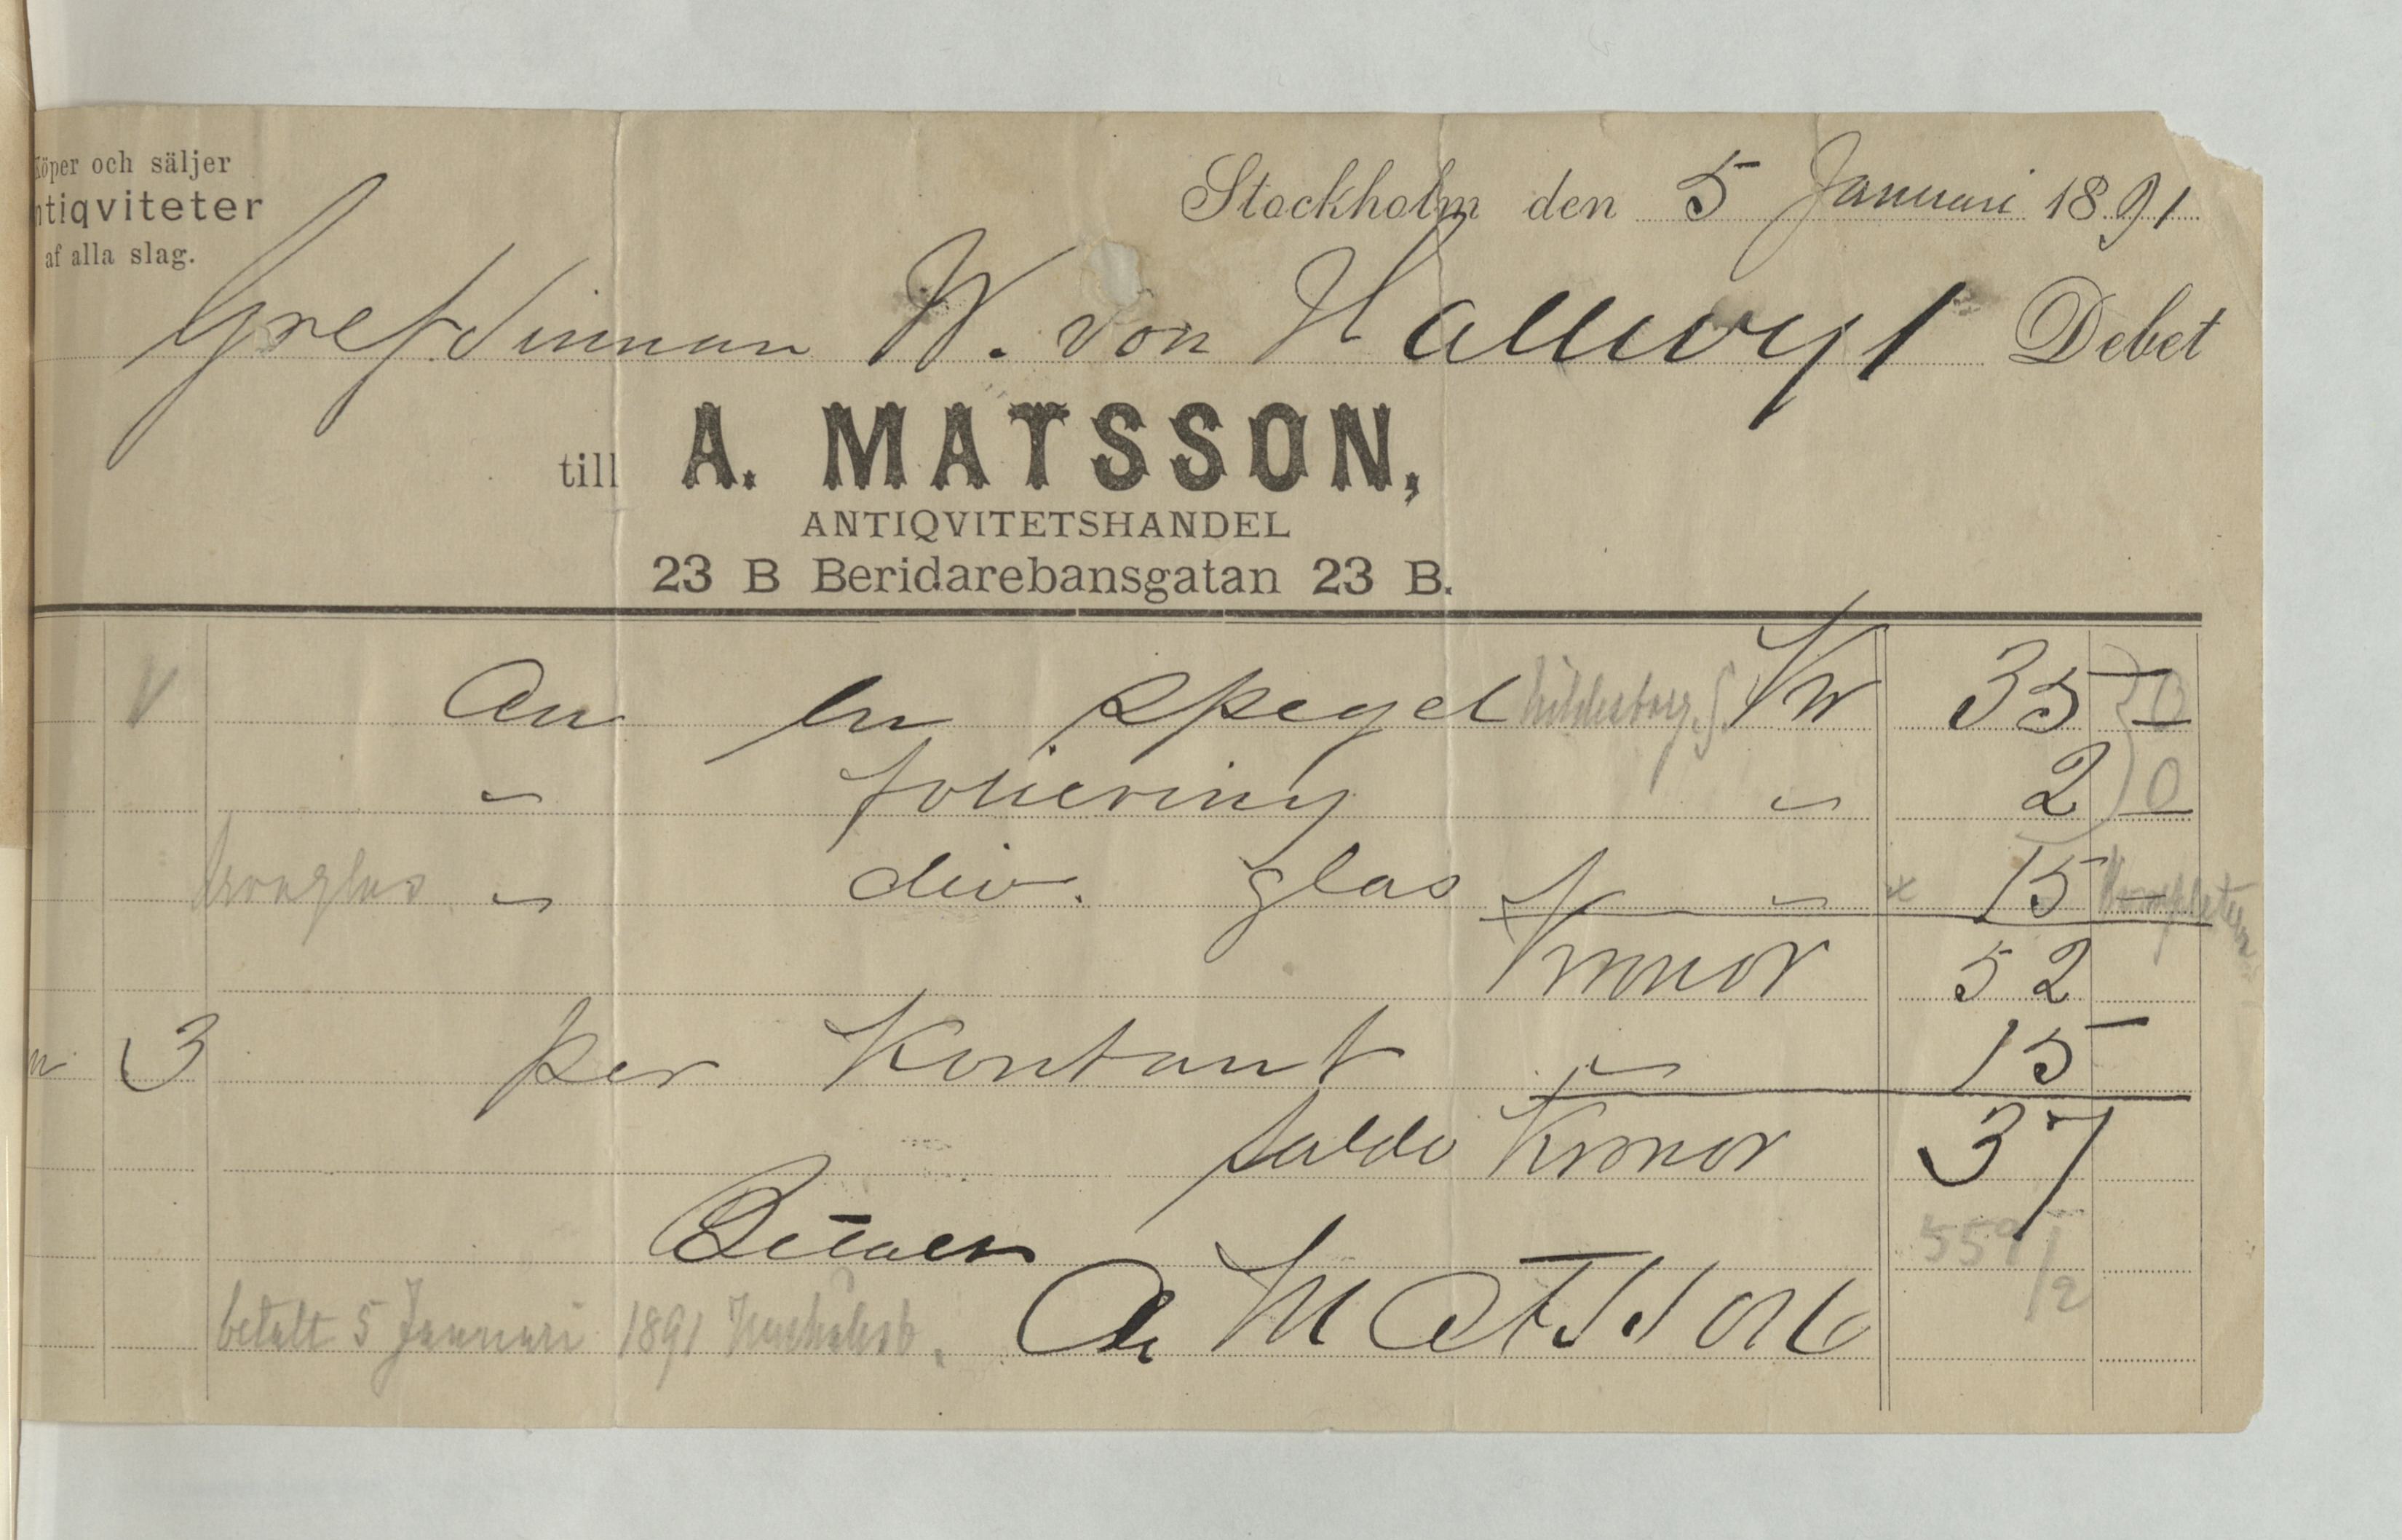 Köper och säljer
Antiqviteter
af alla slag.
Stockholm den 5 Januari 1891
Grefvinnan W. von Hallwyl Debet
till A. MATSSON,
ANTIQVITETSHANDEL
23 B Beridarebansgatan 23 B.
V An en spegel Kr 35 0
" foliering " 2 0
" div. glas " x 15
Kronor 52
3 per Kontant " 15
saldo Kronor 37
Betalt
559/2
betalt 5 Januari 1891 A Matsson